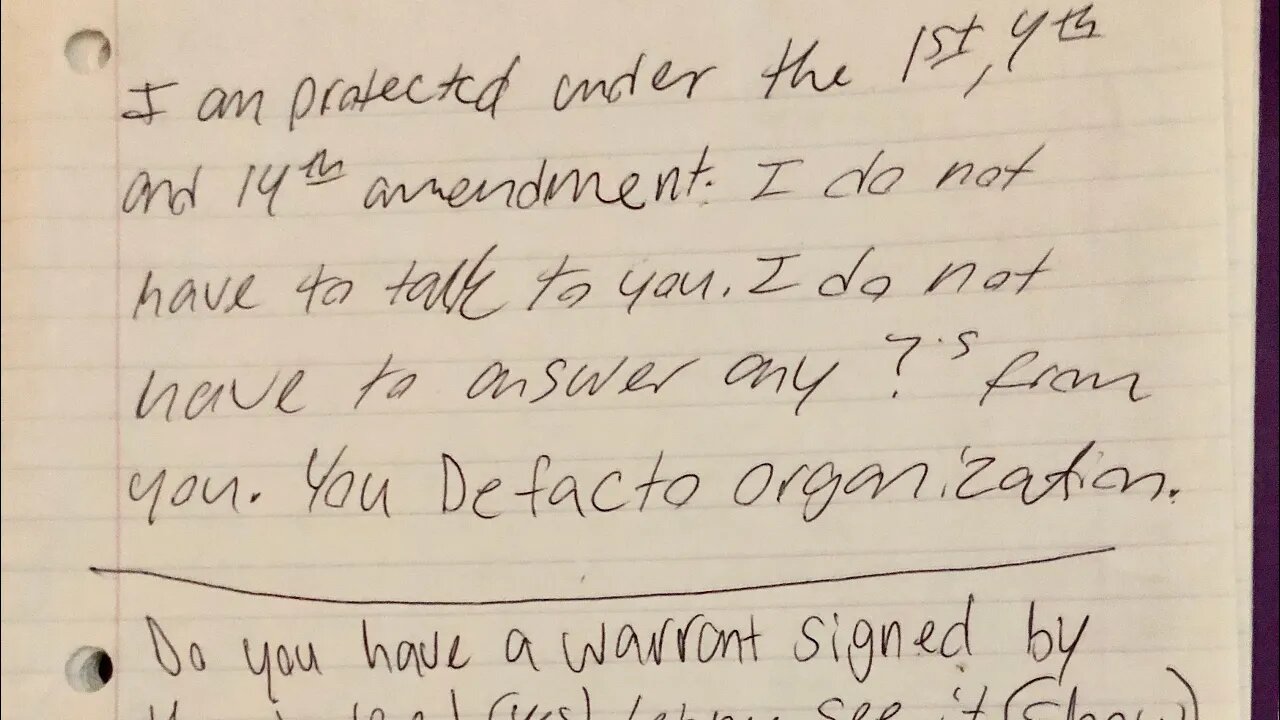 I am protected under the 1st, 4th
and 14th amendment. I do not
have to talk to you. I do not
have to answer any ?'s from
you. You Defacto organization.
Do you have a warrant signed by
(yes) see it (show)